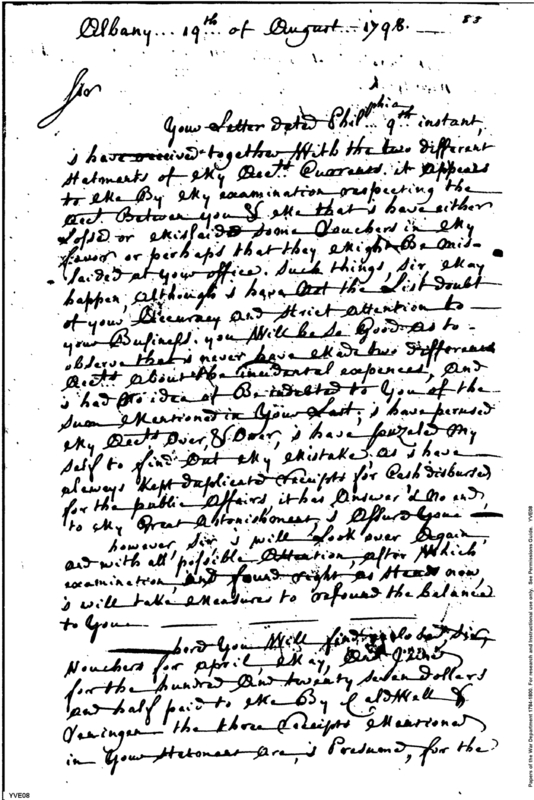 83
Albany... 19th of August - 1798.
Sir
Your Letter dated Philphia 9th instant,
s have received together With the two different
statments of My Acct. Currents. it Appears
to Me By My examination respecting the
Acct. Between you & Me that s have either
Losse or Mislaied some Vouchers in My
favor or perhaps that they Might Be mis-
laied at your office. such things, sir May
happen, Although s have Not the List doubt
of your Accuracy and strict Attention to
your Business. you Will be so Good as to
observe that s never have Made two different
Accts About the incidental expences, And
s had No idea of Be indebted to You of the
sum Mentioned in Your Last, s have perused
My Accts Over, & Over, s have puzeled My
self to find Out My Mistake. as s have
always Kept duplicated receipts for Cash disbursed
for the public Affairs, it has Answer'd No end,
to My Great Astonishment, s Assure Youe
however, sir, s will Look over Again,
and with all possible Attention, after Which
examination, And found right, as stands now,
s will take Measures to refound the balance
to Youe
You Will find sir,
Vouchers for April, May, And June
for the hundred And twenty seven dollars
and half paid to Me By Caldwell &
the three receipts Mentioned
in Your statement Are, s Presume, for the
YVE08
Papers of the War Department 1784-1800. For research and instructional use only. See Permissions Guide. YVE08